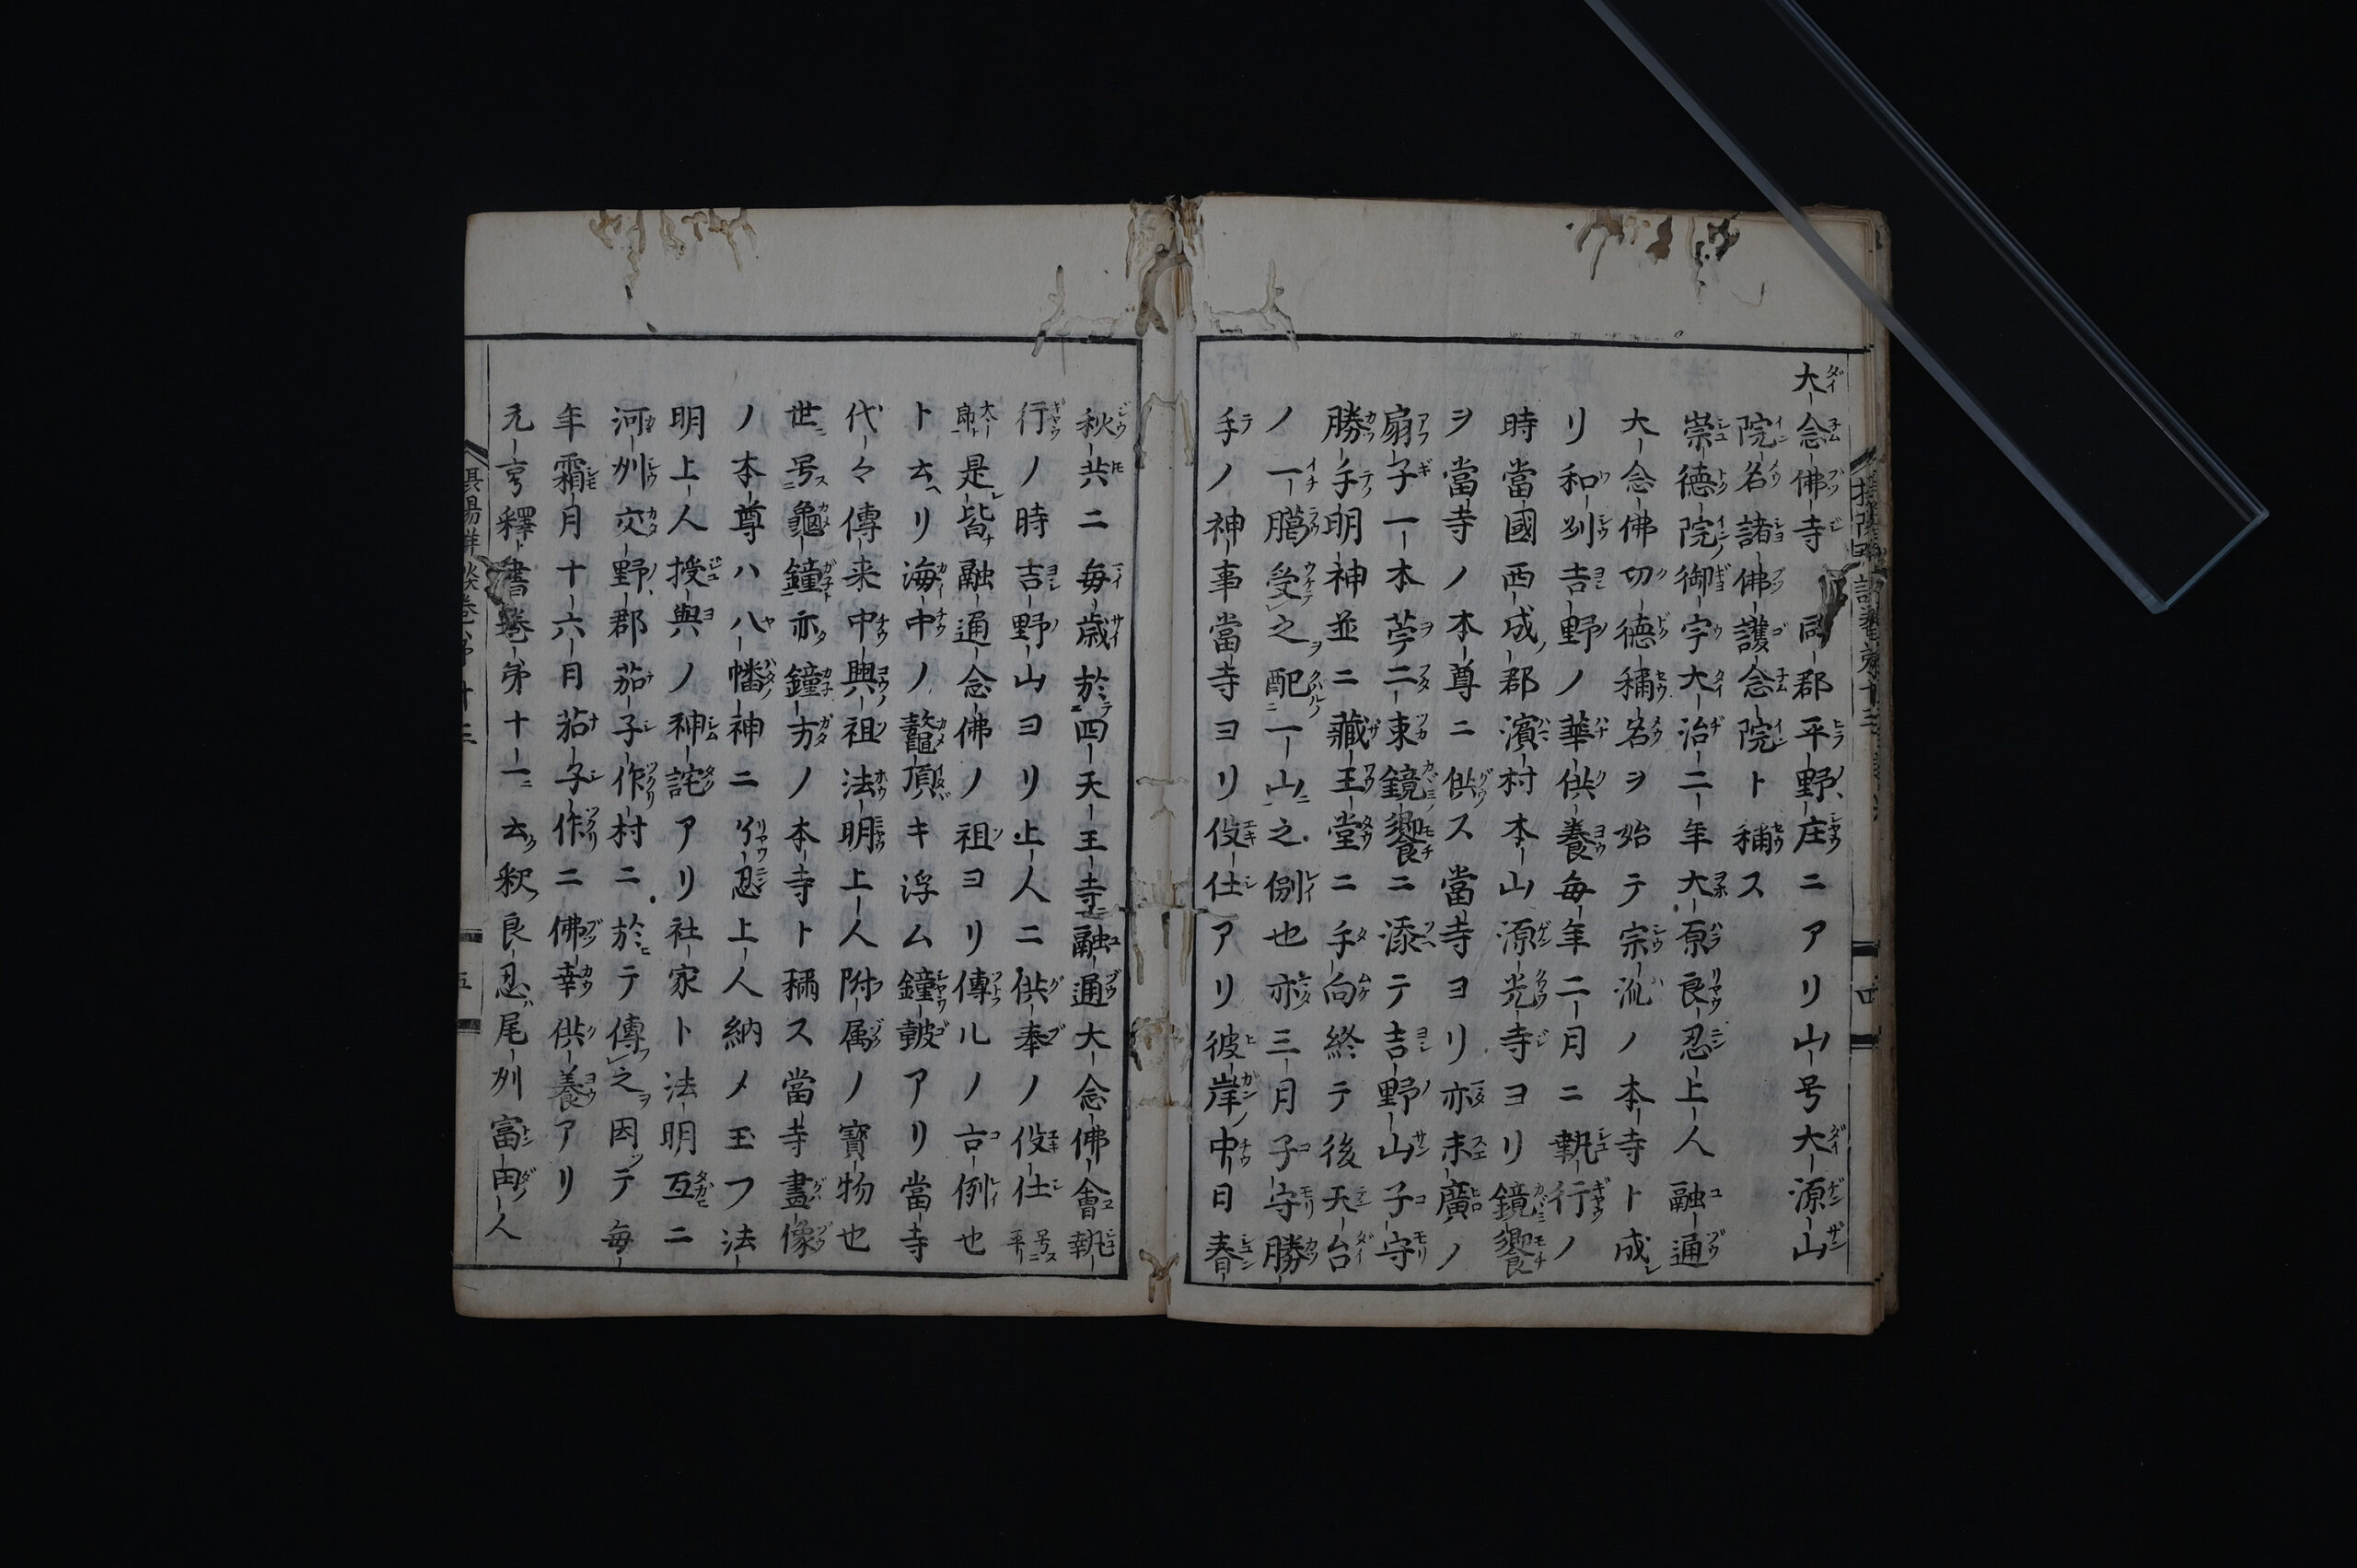 大念佛寺 同郡平野庄ニアリ山号大源山
院名諸佛護念院ト稱ス
崇徳院御宇大治二年大原良忍上人融通
大念佛切徳稱名ヲ始テ宗流ノ本寺ト成
リ和刕吉野ノ華供養毎年二月ニ執行ノ
時當國西成郡濱村本山源光寺ヨリ鏡饗
ヲ當寺ノ本尊ニ供ス當寺ヨリ亦末廣ノ
扇子一本苧二束鏡饗ニ添テ吉野山子守
勝手明神並ニ藏王堂ニ手向終テ後天台
ノ一臈受之配一山之例也亦三月子守勝
手ノ神事當寺ヨリ伇仕アリ彼岸中日春
秋共ニ毎歳於四天王寺融通大念佛會執
行ノ時吉野山ヨリ上人ニ供奉ノ伇仕
是皆融通念佛ノ祖ヨリ傳ルノ古例也
ト云リ海中ノ鼇頂キ浮ム鐘皷アリ當寺
代々傳来中興祖法明上人附属ノ寶物也
世号龜鐘亦鐘方ノ本寺ト稱ス當寺畫像
ノ本尊ハ八幡神ニ乄良忍上人納メ玉フ法
明上人授與ノ神詫アリ社家ト法明互ニ
河刕交野郡茄子作村ニ於テ傳之因テ毎
年霜月十六月茄子作ニ佛幸供養アリ
元亨釋書巻第十一云釈良忍尾刕富田人